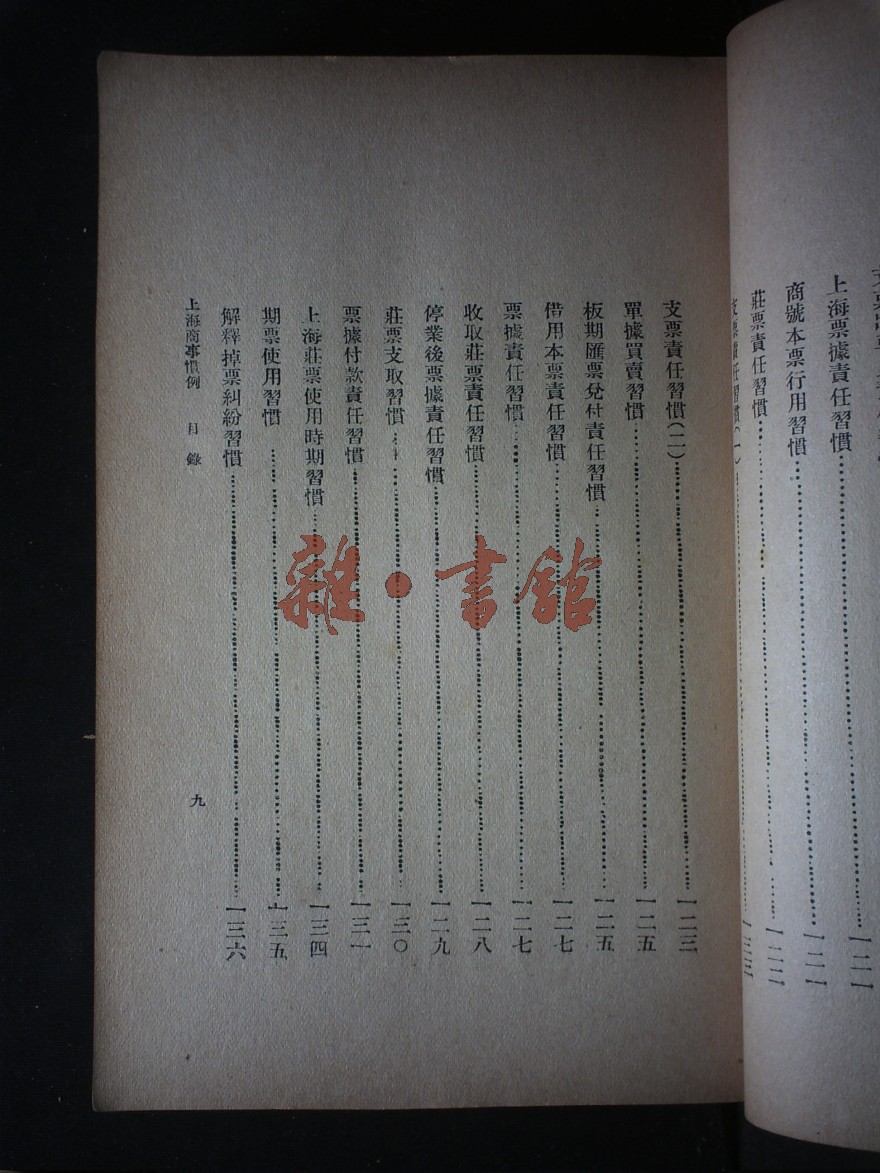 上海票據責任習慣……一二一
商號本票行用習慣……一二一
莊票責任習慣……一二二
支票責任習慣（二）……一二三
單據買賣習慣……一二五
板期匯票兌付責任習慣……一二五
借用本票責任習慣……一二七
票據責任習慣……一二七
收取莊票責任習慣……一二八
停業後票據責任習慣……一二九
莊票支取習慣……一三〇
票據付款責任習慣……一三一
上海莊票使用時期習慣……一三四
期票使用習慣……一三五
解釋掉票糾紛習慣……一三六
上海商事慣例 目錄 九
雜·書館